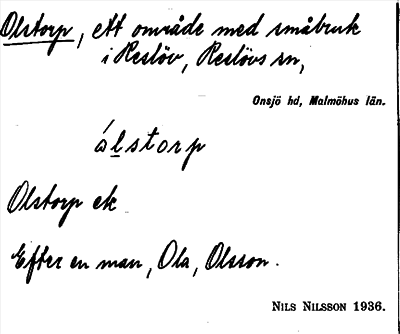 Olstorp, ett område med småbruk
i Reslöv, Reslövs sn,
Onsjö hd, Malmöhus län.
ålstorp
Olstorp ek
Efter en man, Ola, Olsson.
NILS NILSSON 1936.